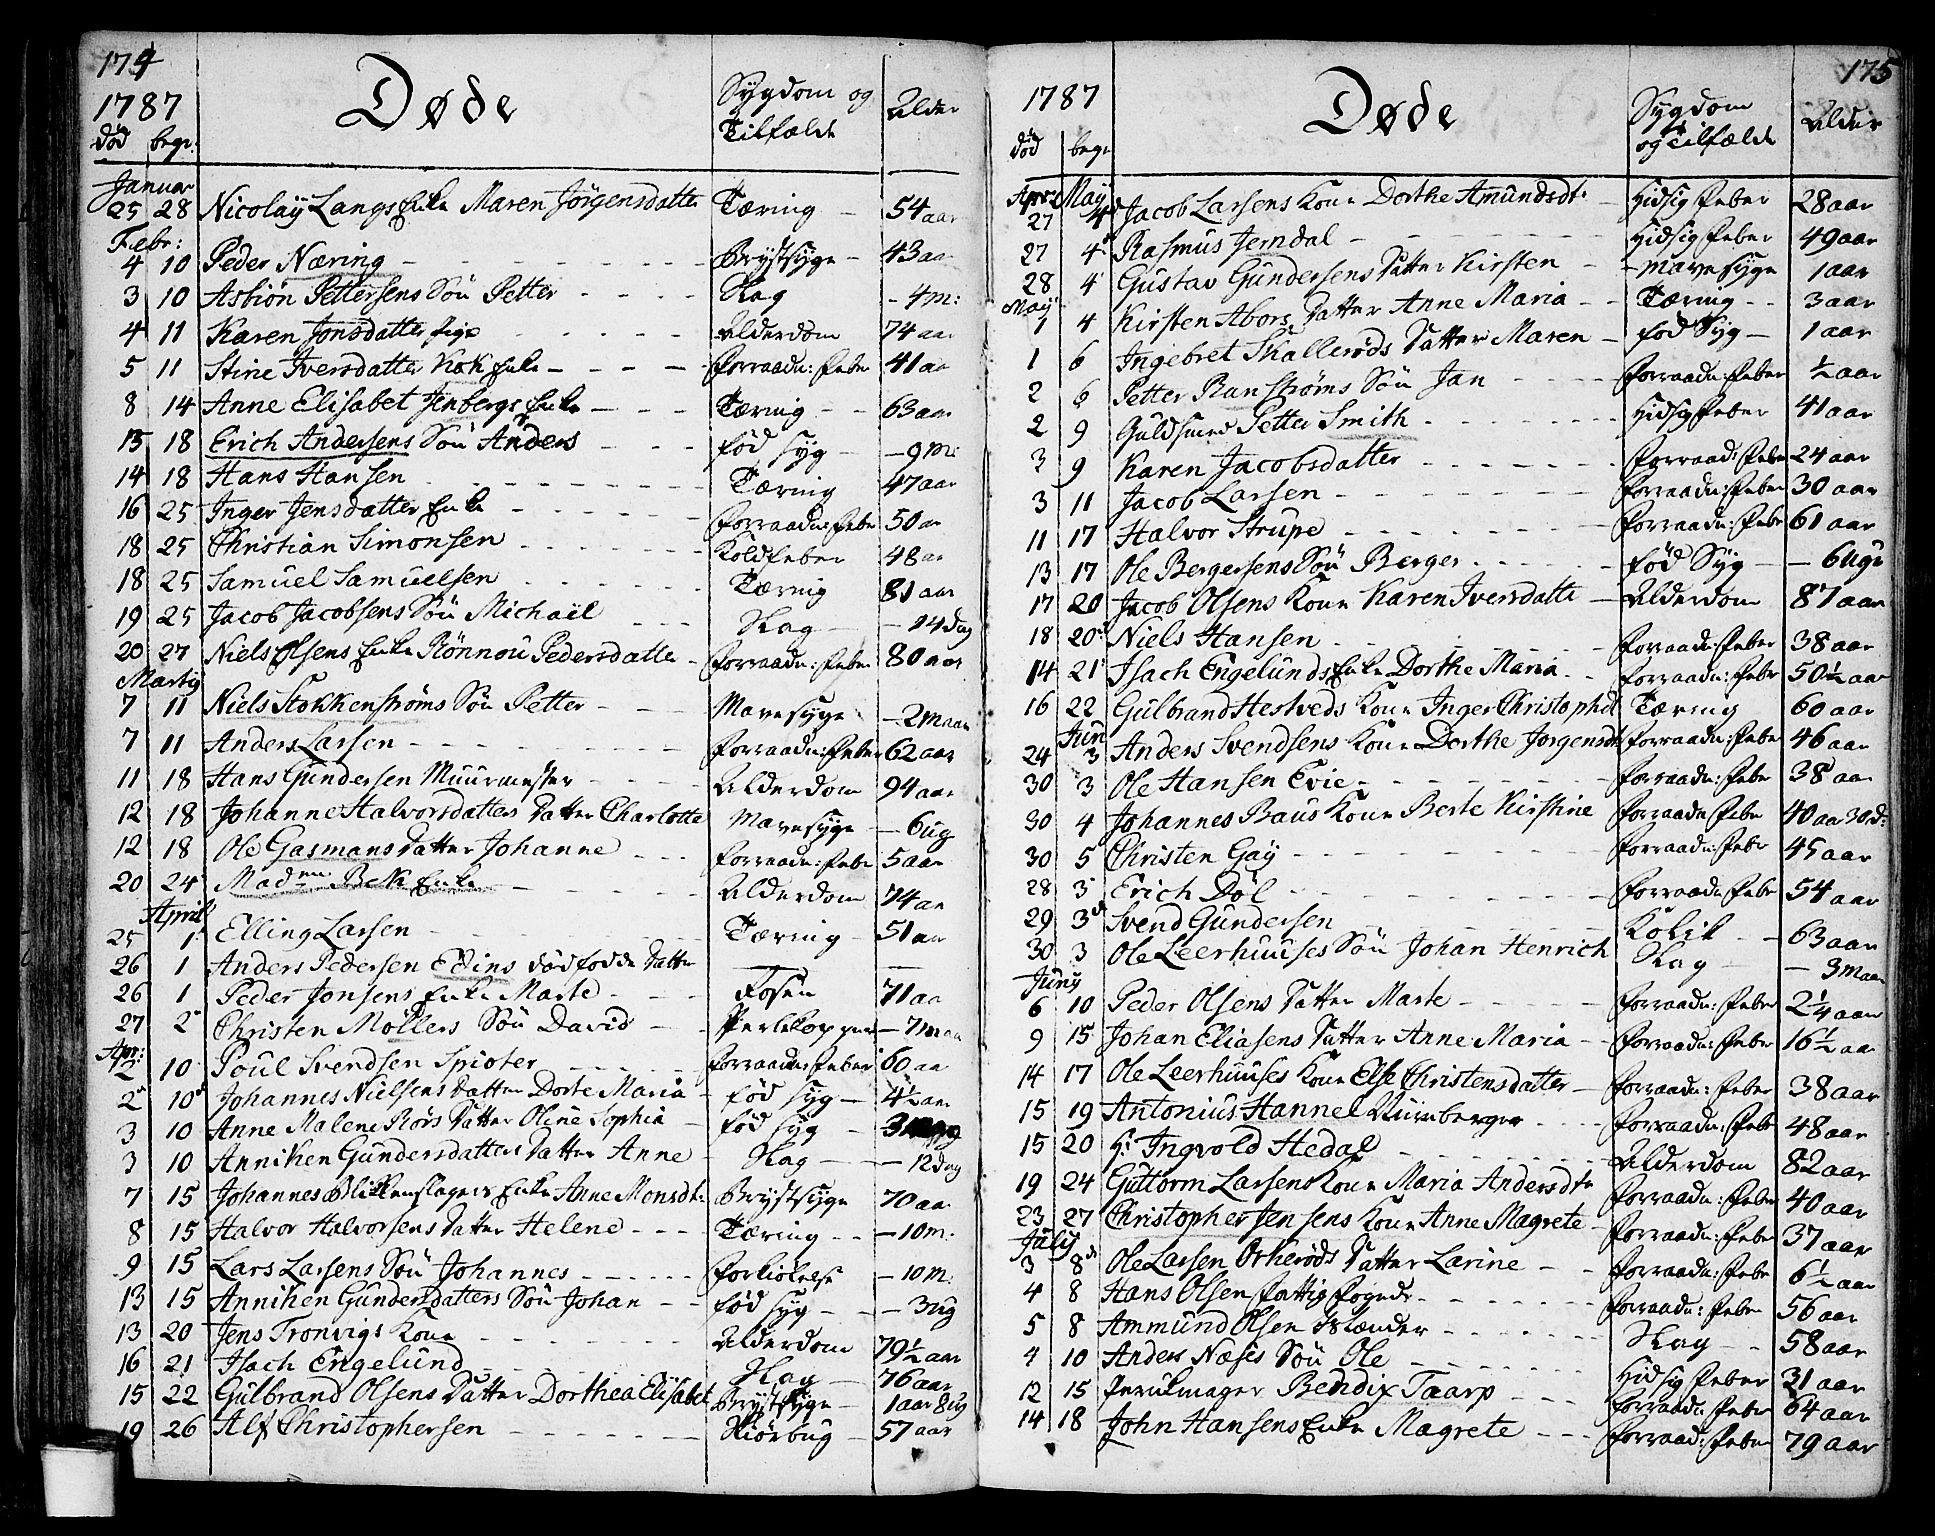 174
1787 Døde Sygdom og Tilfælde Alder
død begr:
Januar
25 28 Nicolaÿ Langs Enke Maren Jörgensdatte Tæring 54 aar
Febr:
4 10 Peder Næring Brystsyge 43 aar
3 10 Asbiön Pettersens Sön Petter Slag 4 m:
4 11 Karen Jonsdatter Pige Alderdom 74 aar
5 11 Stine Iversdatter Kok Enke Forraadn: Feber 41 aar
8 14 Anne Elisabet Jenbergs Enke Tæring 63 aar
13 18 Erich Andersens Sön Anders fød syg 9 m:
14 18 Hans Hansen Tæring 47 aar
16 25 Inger Jensdatter Enke Forraadn: Feber 50 aar
18 25 Christian Simonsen Koldfeber 48 aar
18 25 Samuel Samuelsen Tæring 81 aar
19 25 Jacob Jacobsens Sön Michaël Slag 14 dag
20 27 Niels Olsens Enke Rönnou Pedersdatte Forraadn: Feber 80 aar
Martij
7 11 Niels Stokkenstrøms Sön Petter Mavesyge 2 maan
7 11 Anders Larsen Forraadn: Feber 62 aar
11 18 Hans Gundersen Muurmester Alderdom 94 aar
12 18 Johanne Halvorsdatters Datter Charlotte Mavesyge 6 ug
12 18 Ole Gasmans Datter Johanne Forraadn: Feber 5 aar
20 24 Maden Bek Enke Alderdom 74 aar
April
25 1 Elling Larsen Tæring 51 aar
26 1 Anders Pedersen Edins dødfødde Datter
26 1 Peder Jonsens Enke Marte Fosen 71 aar
27 2 Christen Möllers Sön David Perlekopper 7 maan
Apr:
2 10 Poul Svendsen Spioter Forraadn: Feber 60 aar
2 10 Johannes Nielsens Datter Dorte Maria fød syg 4½ aar
3 10 Anne Malene Rörs Datter Oline Sophia fød syg 3
3 10 Anniken Gundersdatters Datter Anne Slag 12 dag
7 15 Johannes Blikkenslagers Enke Anne Monsdt: Brystsyge 70 aar
8 15 Halvor Halvorsens Datter Helene Tæring 10 m:
9 15 Lars Larsens Sön Johannes Forkiölelse 10 m:
13 15 Anniken Gundersdatters Sön Johan fød syg 3 ug
13 20 Jens Tronvigs Kone Alderdom 79½ aar
16 21 Isach Engelund Slag 76 aar
15 22 Gulbrand Olsens Datter Dorthea Elisabet Brystsyge 1 aar 8 ug
19 26 Alf Christophersen Skiörbug 57 aar
175
1787 Døde Sygdom og Tilfælde Alder
død begr
April May
27 4 Jacob Larsens Kone Dorthe Amundsdt: Hidsig Feber 28 aar
27 4 Rasmus Jerndal Hidsig Feber 49 aar
28 4 Gustav Gundersens Datter Kirsten Mavesyge 1 aar
May
1 4 Kirsten Abors Datter Anne Maria Tæring 3 aar
1 6 Ingebret Skallerøds Datter Maren fød Syg 1 aar
2 6 Petter Ranstrøms Sön Jan Forraadn: Feber ½ aar
2 9 Guldsmed Petter Smith Hidsig Feber 41 aar
3 9 Karen Jacobsdatter Forraad: Feber 24 aar
3 11 Jacob Larsen Forraadn: Feber 30 aar
11 17 Halvor Strupe Forraadn: Feber 61 aar
13 17 Ole Bergersens Sön Berger fød Syg 6 uger
17 20 Jacob Olsens Kone Karen Iversdatte Alderdom 87 aar
18 20 Niels Hansen Forraadn: Feber 38 aar
14 21 Isach Engelunds Enke Dorthe Maria Forraadn: Feber 50½ aar
16 22 Gulbrand Hestveds Kone Inger Christophdt Tæring 60 aar
Jun
24 3 Anders Svendsens Kone Dorthe Jorgensdt Forraadn: Feber 46 aar
30 3 Ole Hansen Evie Forraadn: Feber 38 aar
30 4 Johannes Baus Kone Berte Kirstine Forraadn Feber 40 aar 30 d:
30 5 Christen Gaÿ Forraadn: Feber 45 aar
28 3 Erich Döl Forraadn Feber 54 aar
29 3 Svend Gundersen Kolik 63 aar
30 3 Ole Leerhuuses Sön Johan Henrich Slag 3 maan
Junij
6 10 Peder Olsens Datter Marte Forraadn: Feber 2¼ aar
9 15 Johan Eliasens Datter Anne Maria Forraadn: Feber 16½ aar
14 17 Ole Leerhuuses Kone Else Christensdatter Forraadn: Feber 38 aar
15 19 Antonius Hannel Nürnberger Forraadn: Feber 48 aar
15 20 Hr Ingvold Hedal Alderdom 82 aar
19 24 Guttorm Larsens Kone Maria Andersdtr Forraadn: Feber 40 aar
23 27 Christopher Jensens Kone Anne Magrete Forraadn: Feber 37 aar
Julij
3 8 Ole Larsen Orkerøds Datter Larine Forraadn: Feber 6½ aar
4 8 Hans Olsen Fattig Fogede Forraadn: Feber 56 aar
5 8 Ammund Olsen Islænder Slag 58 aar
4 10 Anders Næses Sön Ole Hidsig Feber 31 aar
12 15 Perukmager Bendix Taarp Forraadn Feber 64 aar
14 18 John Hansens Enke Magrete Forraad: Feber 79 aar